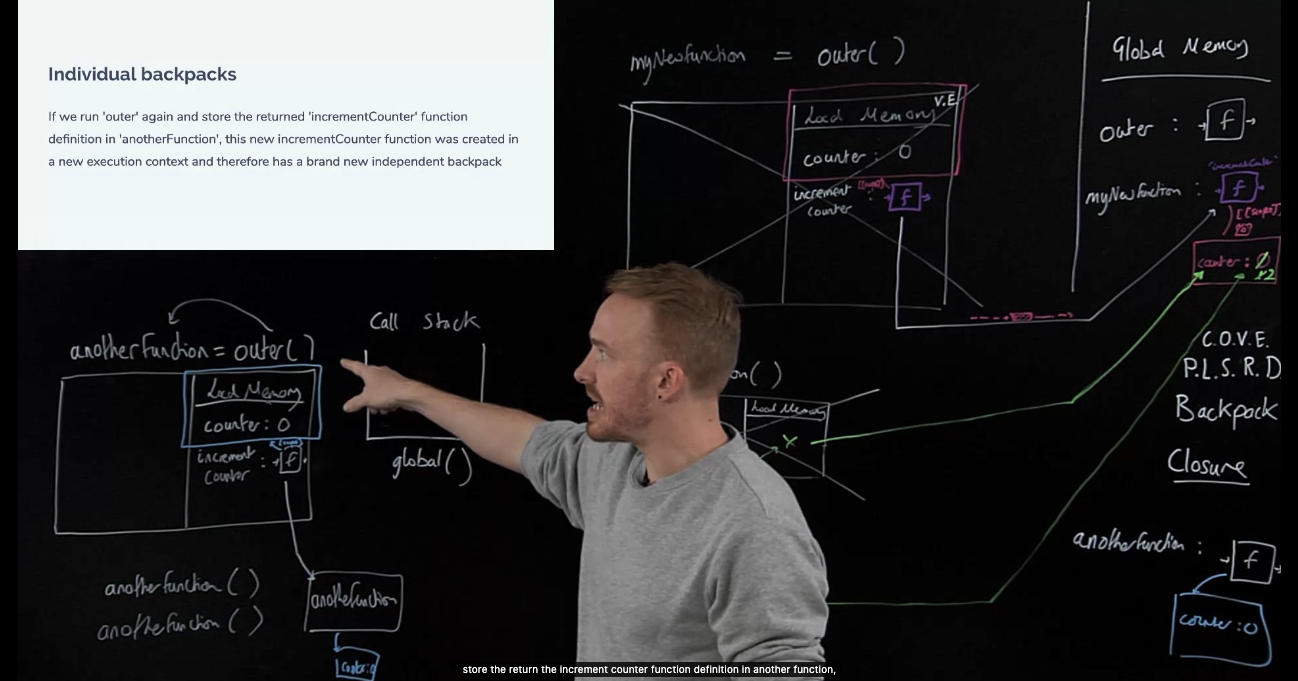 Individual backpacks
If we run 'outer' again and store the returned 'incrementCounter' function
definition in 'anotherFunction', this new incrementCounter function was created in
a new execution context and therefore has a brand new independent backpack
myNewFunction = outer( )
V.E
Local Memory
counter : 0
increment
counter : f
Global Memory
outer : f
"incrementCounter"
myNewFunction : f
[[scope]]
counter : 0
1 2
C.O.V.E.
P.L.S.R.D
Backpack
Closure
anotherfunction : f
counter : 0
anotherfunction = outer( )
Local Memory
counter : 0
increment
counter : f
Call Stack
global( )
on( )
Local Memory
anotherfunction ( )
anotherfunction ( )
anotherfunction
counter:0
store the return the increment counter function definition in another function,